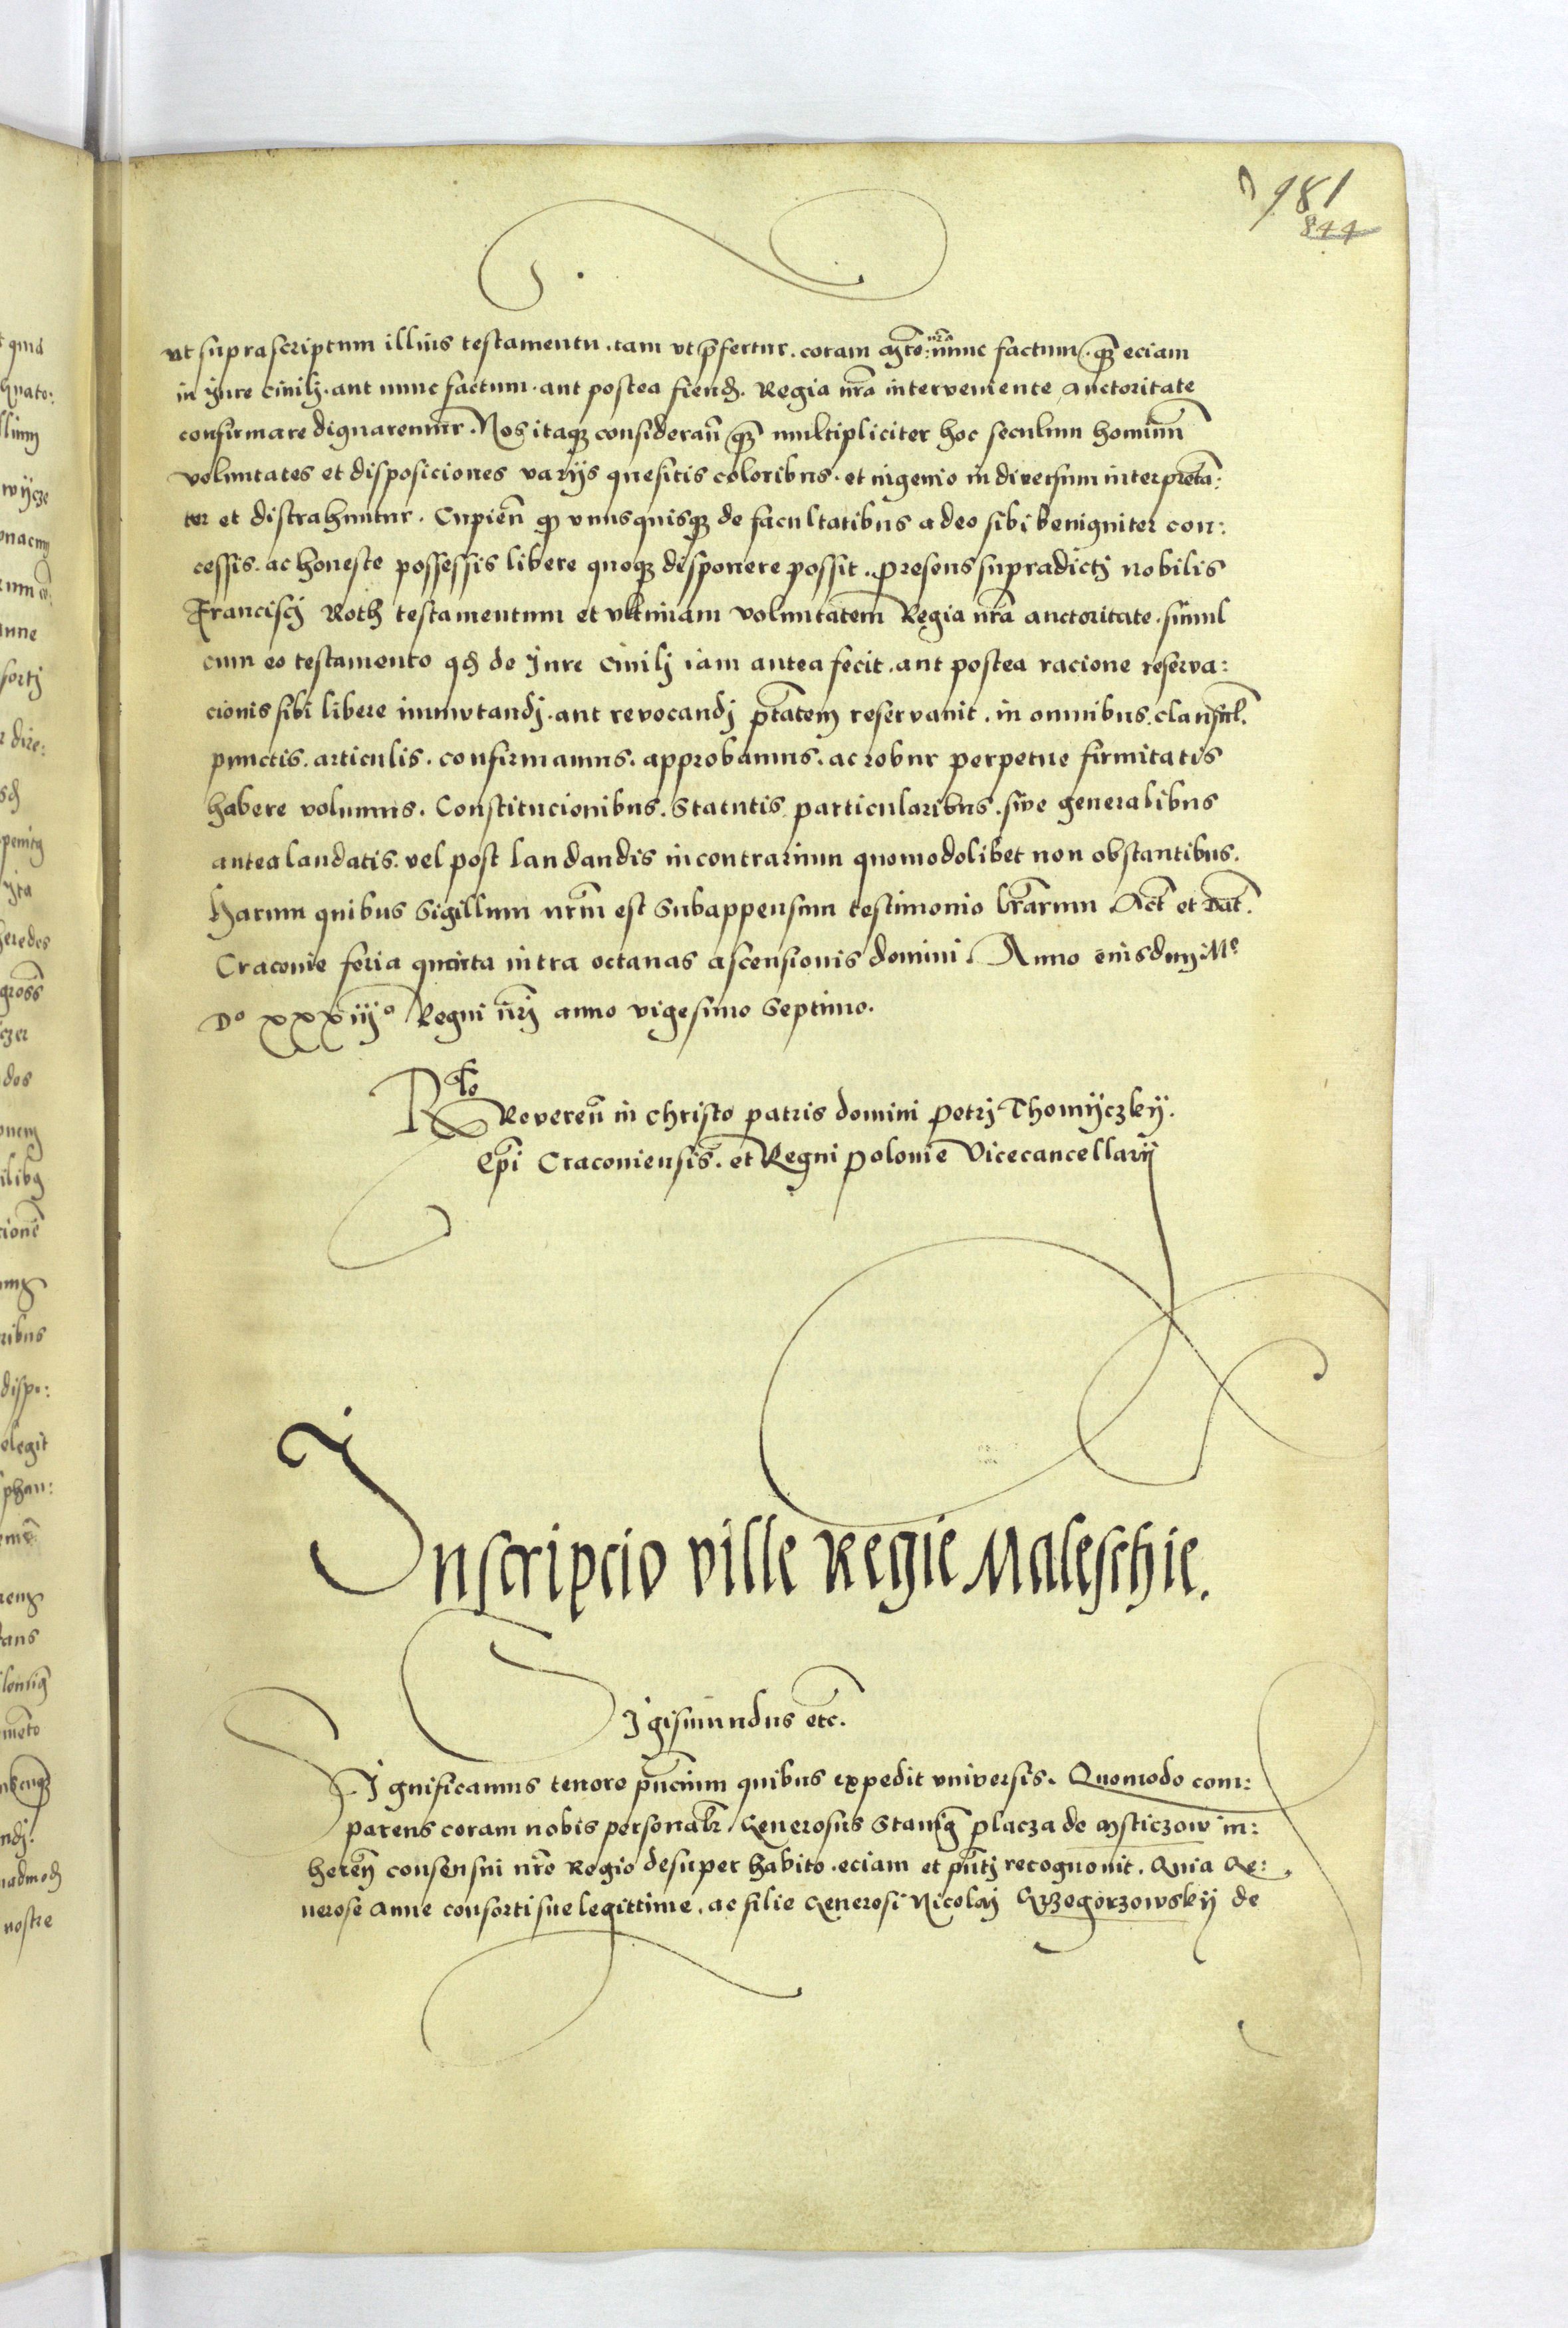 981
844
ut suprascriptum illius testamentu. tam ut p̄fertur. coram Mte: nr̄a nunc factum. q̄ȝ eciam
in Jure Civilj. aut nunc factum. aut postea fiend. Regia nr̄a interveniente auctoritate
confirmare dignaremur. Nos itaqȝ consideran̄ q̄ȝ multipliciter hoc seculum hominū
voluntates et disposiciones varijs quesitis coloribus. et ingenio in diversum interpreta:
tur et distrahuntur. Cupien̄ qȝ unusquisqȝ de facultatibus a deo sibi benigniter con:
cessis. ac honeste possessis libere quoqȝ disponere possit. presens supradictj nobilis
Franciscj Roth testamentum et ultimam voluntatem Regia nr̄a auctoritate. simul
cum eo testamento qd de Jure Civilj iam antea fecit. aut postea racione reserva:
cionis sibi libere immutandj. aut revocandj ptātem reservavit. in omnibus. clausul.
punctis. articulis. confirmamus. approbamus. ac robur perpetue firmitatis
habere volumus. Constitucionibus. Statutis particularibus. sive generalibus
antea laudatis. vel post laudandis in contrarium quomodolibet non obstantibus.
Harum quibus Sigillum nrm̄ est Subappensum testimonio lr̄arum Act̄ et Dat̄.
Cracovie feria quinta intra octavas ascensionis domini. Anno eiusdem Mo
Do xxxiijo Regni nrj̄ anno vigesimo Septimo.
Rlo
Reveren̄ in Christo patris domini petrj Thomyczky.
Ep̄i Cracoviensis. et Regni polonie Vicecancellarij
Inscripcio ville Regie Maleschie.
Sigismundus etc.
Significamus tenore pn̄cium quibus expedit universis. Quomodo com:
parens coram nobis personalr̄ Generosus Stanis̄ placza de Msticzow in:
heren̄ consensui nr̄o Regio desuper habito. eciam et pn̄tj recognovit. Quia Ge:
nerose Anne consorti sue legittime. ac filie Generosi Nicolaj Grzegorzowskij de